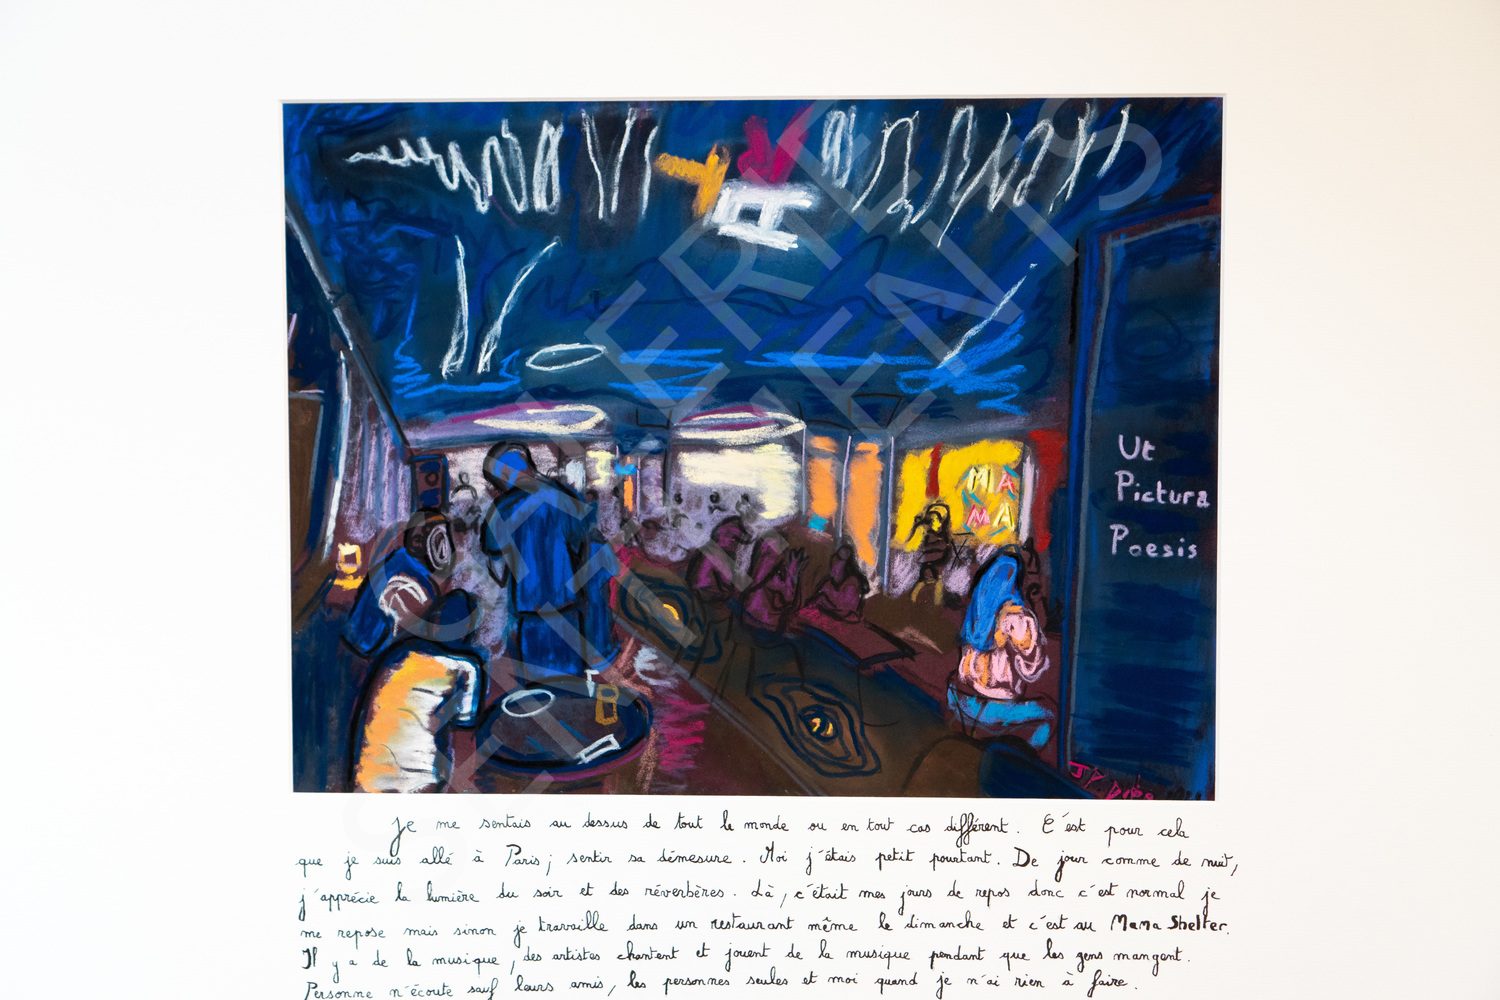 GALERIE
SENTIMENTS
MA
MA
Ut
Pictura
Poesis
J.P. Dubo
Je me sentais au dessus de tout le monde ou en tout cas différent. C'est pour cela
que je suis allé à Paris; sentir sa démesure. Moi j'étais petit pourtant. De jour comme de nuit,
j'apprécie la lumière du soir et des réverbères. Là, c'était mes jours de repos donc c'est normal je
me repose mais sinon je travaille dans un restaurant même le dimanche et c'est au MaMa Shelter.
Il y a de la musique, des artistes chantent et jouent de la musique pendant que les gens mangent.
Personne n'écoute sauf leurs amis, les personnes seules et moi quand je n'ai rien à faire.